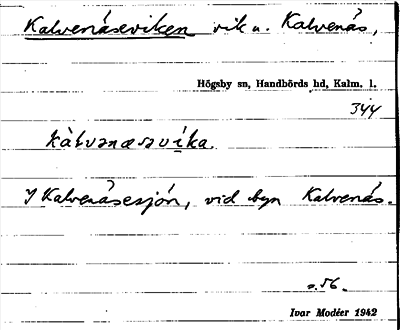 Kalvenäseviken vik u. Kalvenäs,
Högsby sn, Handbörds hd, Kalm. l.
344
kàlvənæsəvìka.
I Kalvenäsesjön, vid byn Kalvenäs.
s. 56.
Ivar Modéer 1942